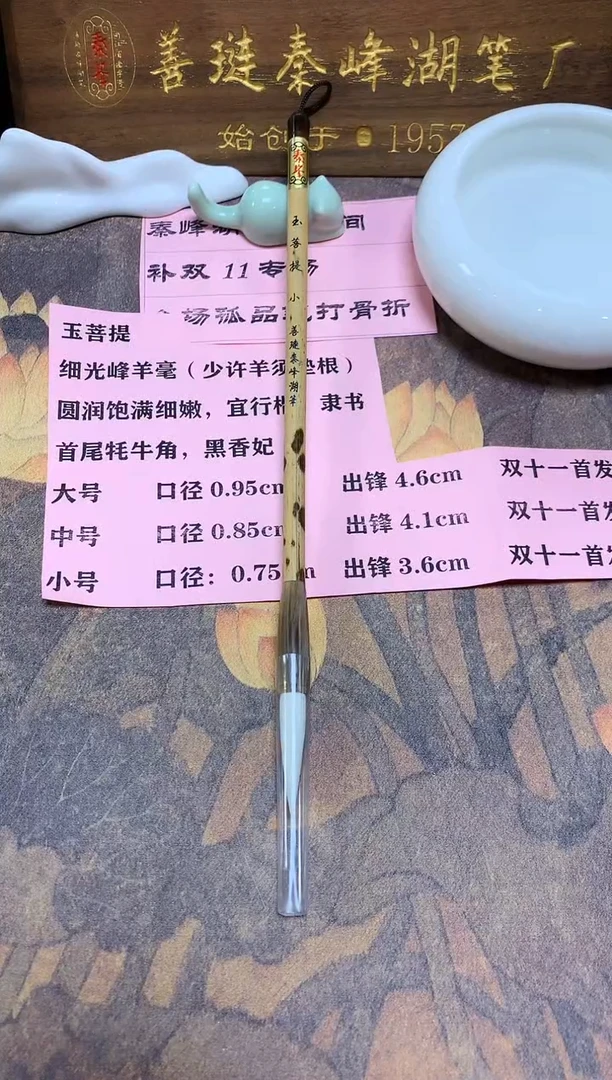 善琏秦峰湖笔厂
始创于 1957
秦峰
秦峰湖 间
补双 11 专场
场孤品 打骨折
玉菩提
细光峰羊毫（少许羊须垫根）
圆润饱满细嫩，宜行楷 隶书
首尾牦牛角，黑香妃
大号 口径 0.95cm 出锋 4.6cm 双十一首发
中号 口径 0.85cm 出锋 4.1cm 双十一首发
小号 口径：0.75 m 出锋 3.6cm 双十一首发
玉菩提 小 善琏秦峰湖筆